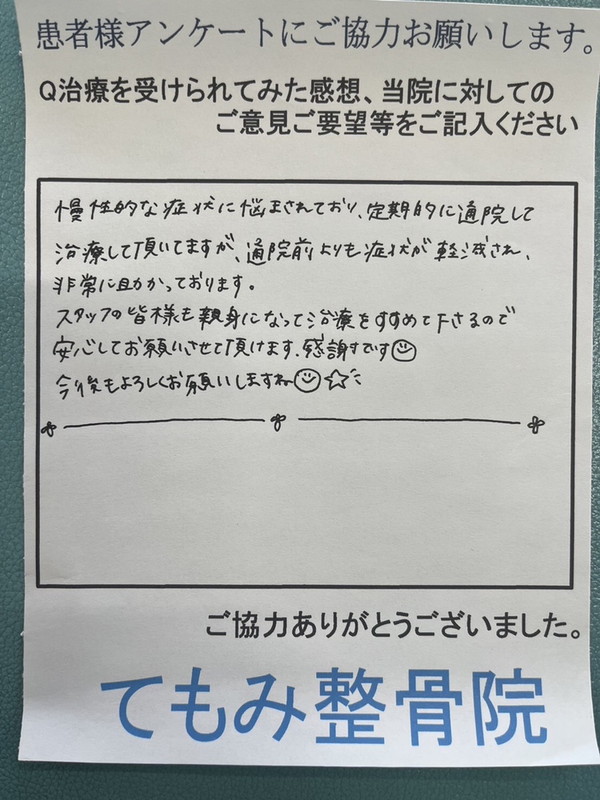 患者様アンケートにご協力お願いします。
Q治療を受けられてみた感想、当院に対しての
ご意見ご要望等をご記入ください
慢性的な症状に悩まされており、定期的に通院して
治療して頂いてますが、通院前よりも症状が軽減され、
非常に助かっております。
スタッフの皆様も親身になって治療をすすめて下さるので
安心してお願いさせて頂けます。感謝です
今後もよろしくお願いしますね
ご協力ありがとうございました。
てもみ整骨院